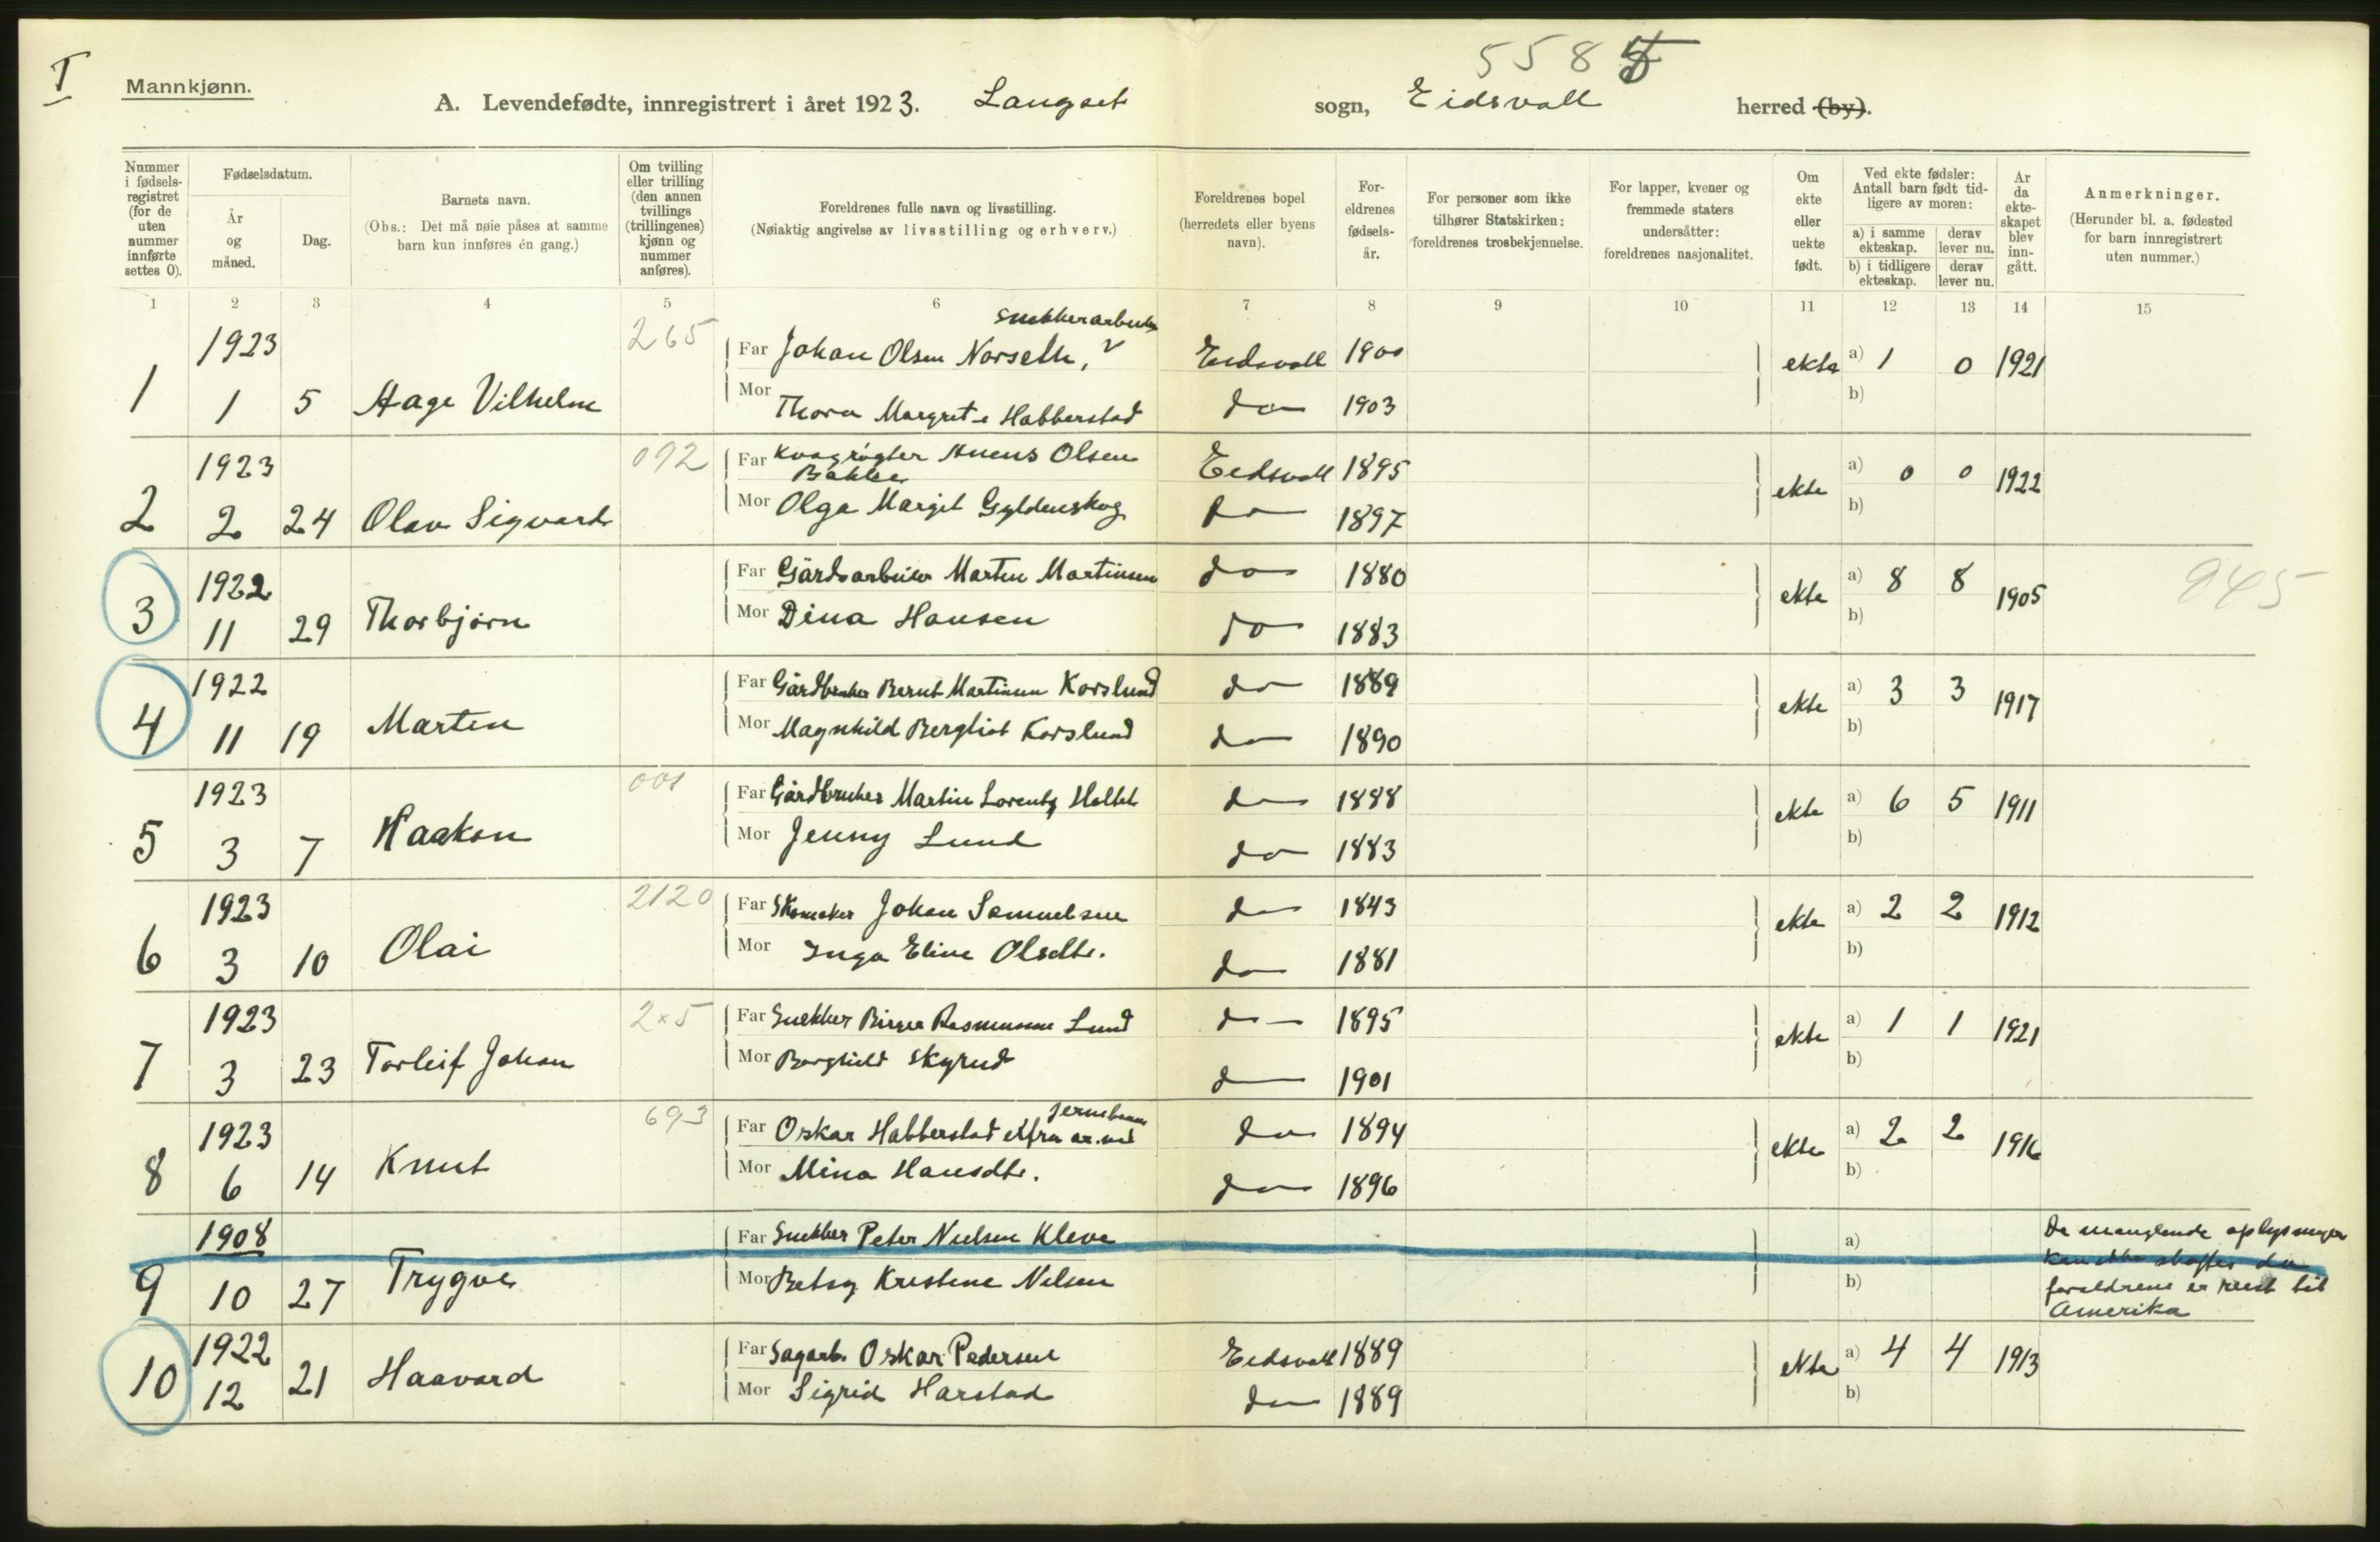 I
5585
Mannkjønn.
A. Levendefødte, innregistrert i året 1923. Langset sogn, Eidsvoll herred (by).
Nummer i fødsels-registret (for de uten nummer innførte settes 0).
Fødselsdatum.
År og måned.
Dag.
Barnets navn.
(Obs.: Det må nøie påses at samme barn kun innføres én gang.)
Om tvilling eller trilling (den annen tvillings (trillingenes) kjønn og nummer anføres).
Foreldrenes fulle navn og livsstilling.
(Nøiaktig angivelse av livsstilling og erhverv.)
Foreldrenes bopel
(herredets eller byens navn).
For-eldrenes fødsels-år.
For personer som ikke tilhører Statskirken: foreldrenes trosbekjennelse.
For lapper, kvener og fremmede staters undersåtter: foreldrenes nasjonalitet.
Om ekte eller uekte født.
Ved ekte fødsler: Antall barn født tid-ligere av moren:
a) i samme ekteskap.
derav lever nu.
b) i tidligere ekteskap.
derav lever nu.
År da ekte-skapet blev inn-gått.
Anmerkninger.
(Herunder bl. a. fødested for barn innregistrert uten nummer.)
1 2 3 4 5 6 7 8 9 10 11 12 13 14 15
1923 265 Snekkerarbeider
Far Johan Olsen Norseth, Eidsvoll 1900 ekte a) 1 0 1921
1 1 5 Aage Vilhelm
Mor Thora Margrete Habberstad do 1903 b)
1923 092 Far Kvægrøgter Anens Olsen Eidsvoll 1895 a) 0 0 1922
Bakke
2 2 24 Olav Sigvard Mor Olga Margit Gyldenskog do 1897 ekte b)
1922 Far Gårdsarbeider Marten Martinsen do 1880 a) 8 8 1905 945
3 11 29 Thorbjørn Mor Dina Hansen do 1883 ekte b)
1922 Far Gårdbruker Bernt Martinsen Korslund do 1889 a) 3 3 1917
4 11 19 Marten Mor Magnhild Bergliot Korslund do 1890 ekte b)
1923 001 Far Gårdbruker Martin Lorentz Holtet do 1888 a) 6 5 1911
5 3 7 Haakon Mor Jenny Lund do 1883 ekte b)
1923 2120 Far Skomaker Johan Samuelsen do 1843 a) 2 2 1912
6 3 10 Olai Mor Inga Eline Olsdtr. do 1881 ekte b)
1923 2x5 Far Snekker Birger Rasmussen Lund do 1895 a) 1 1 1921
7 3 23 Torleif Johan Mor Borghild Skyrud do 1901 ekte b)
1923 693 jernbane
Far Oskar Habberstad do 1894 a) 2 2 1916
8 6 14 Knut Mor Mina Hansdtr. do 1896 ekte b)
1908 Far Snekker Peter Nielsen Kleve a) De manglende oplysninger
kan ikke skaffes da
9 10 27 Trygve Mor Betsy Kristine Nilsen b) foreldrene er reist til
Amerika
1922 Far Sagarb. Oskar Pedersen Eidsvoll 1889 a) 4 4 1913
10 12 21 Haavard Mor Sigrid Harstad do 1889 ekte b)